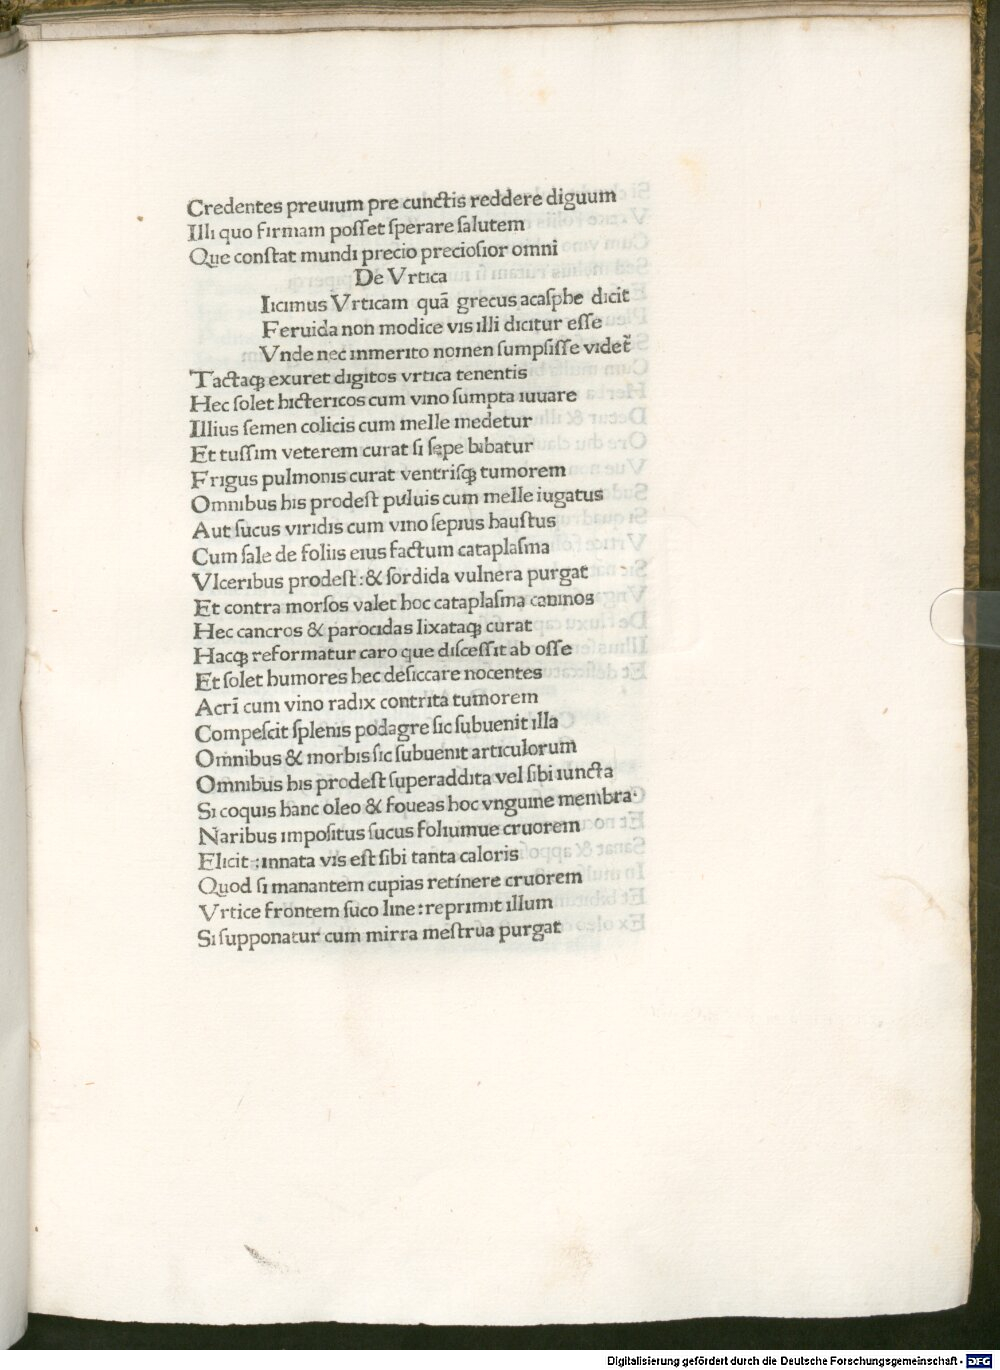 Credentes preuium pre cunctis reddere diguum
Illi quo firmam posſet ſperare ſalutem
Que conſtat mundi precio precioſior omni
De Vrtica
Iicimus Vrticam quā grecus acaſphe dicit
Feruida non modice vis illi dicitur eſſe
Vnde nec inmerito nomen ſumpſiſſe videt̄
Tactaqꝫ exuret digitos vrtica tenentis
Hec ſolet hictericos cum vino ſumpta iuuare
Illius ſemen colicis cum melle medetur
Et tuſſim veterem curat ſi ſępe bibatur
Frigus pulmonis curat ventriſqꝫ tumorem
Omnibus his prodeſt puluis cum melle iugatus
Aut ſucus viridis cum vino ſepius hauſtus
Cum ſale de foliis eius factum cataplaſma
Vlceribus prodeſt: & ſordida vulnera purgat
Et contra morſos valet hoc cataplaſma caninos
Hec cancros & parocidas lixataqꝫ curat
Hacqꝫ reformatur caro que diſceſſit ab oſſe
Et ſolet humores hec deſiccare nocentes
Acrī cum vino radix contrita tumorem
Compeſcit ſplenis podagre ſic ſubuenit illa
Omnibus & morbis ſic ſubuenit articulorum
Omnibus his prodeſt ſuperaddita vel ſibi iuncta
Si coquis hanc oleo & foueas hoc vnguine membra·
Naribus impoſitus ſucus foliumue cruorem
Elicit: innata vis eſt ſibi tanta caloris
Quod ſi manantem cupias retinere cruorem
Vrtice frontem ſuco line: reprimit illum
Si ſupponatur cum mirra meſtrua purgat
Digitalisierung gefördert durch die Deutsche Forschungsgemeinschaft - DFG